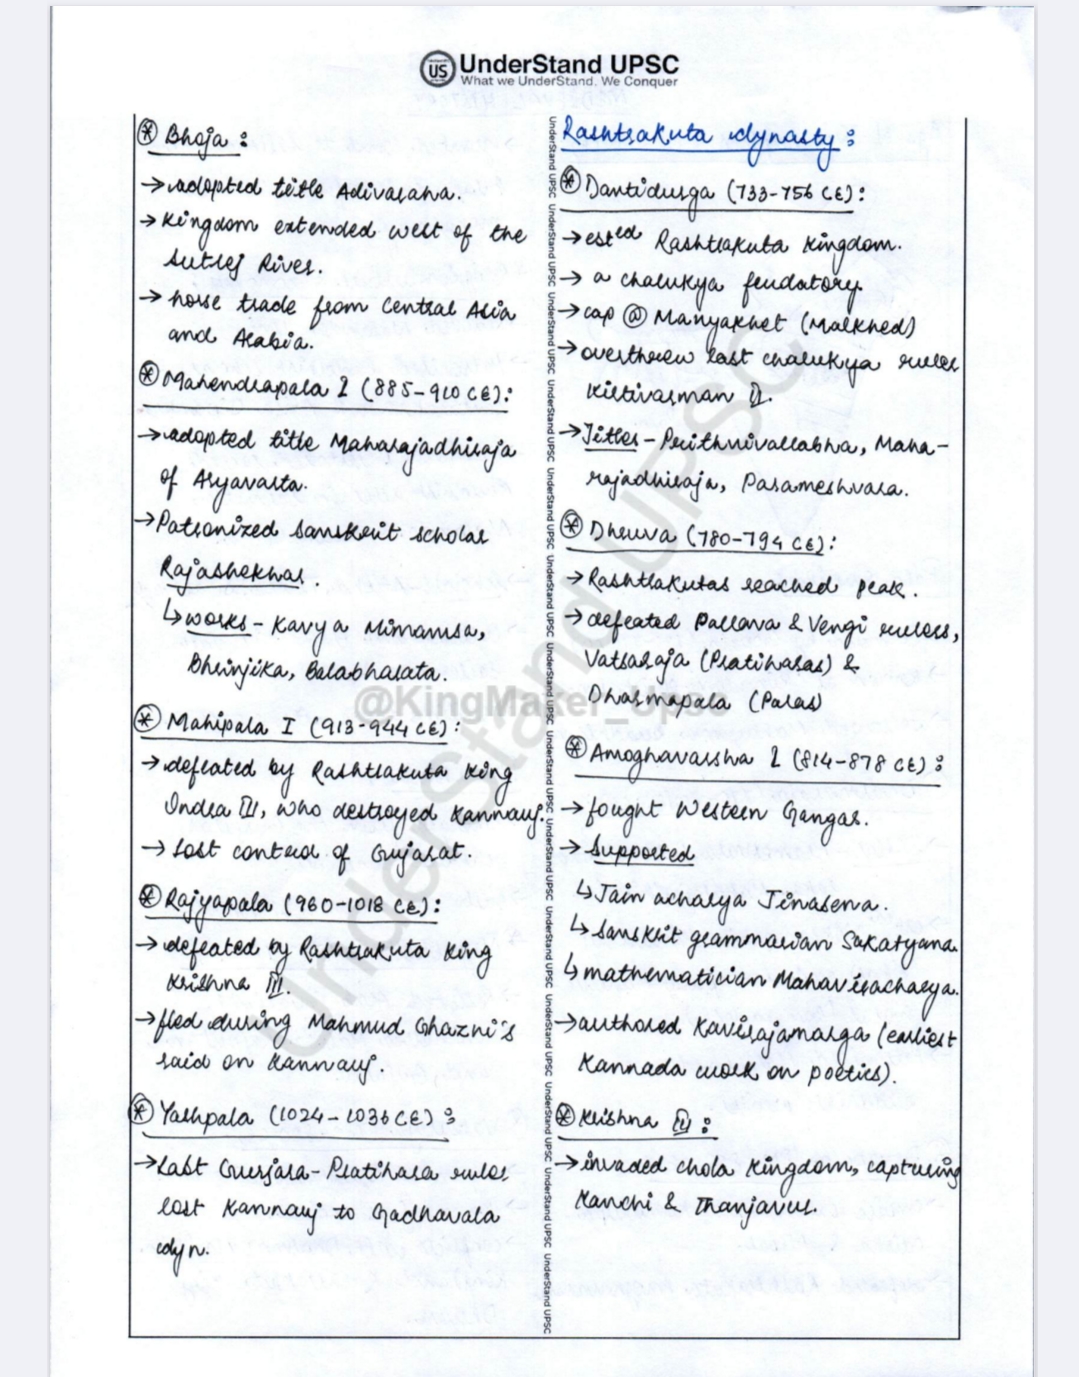 UnderStand UPSC
What we UnderStand, We Conquer
⊛ Bhoja :
→ adopted title Adivaraha.
→ Kingdom extended west of the
Sutlej River.
→ horse trade from Central Asia
and Arabia.
⊛ Mahendrapala I (885-910 CE):
→ adopted title Maharajadhiraja
of Aryavarta.
→ Patronized Sanskrit scholar
Rajashekhar.
↳ works - Kavya Mimamsa,
Bhrinjika, Balabharata.
⊛ Mahipala I (913-944 CE):
→ defeated by Rashtrakuta king
Indra III, who destroyed Kannauj.
→ Lost control of Gujarat.
⊛ Rajyapala (960-1018 CE):
→ defeated by Rashtrakuta King
Krishna III.
→ fled during Mahmud Ghazni's
raid on Kannauj.
⊛ Yashpala (1024-1036 CE) :
→ Last Gurjara-Pratihara ruler
lost Kannauj to Gadhavala
dyn.
Rashtrakuta dynasty :
⊛ Dantidurga (733-756 CE):
→ est^ed Rashtrakuta Kingdom.
→ a Chalukya feudatory.
→ cap @ Manyakhet (Malkhed)
→ overthrew last chalukya ruler
Kirtivarman II.
→ Titles - Prithvivallabha, Maha-
rajadhiraja, Parameshvara.
⊛ Dhruva (780-794 CE):
→ Rashtrakutas reached peak.
→ defeated Pallava & Vengi rulers,
Vatsaraja (Pratiharas) &
Dharmapala (Palas)
⊛ Amoghavarsha I (814-878 CE) :
→ fought Western Gangas.
→ Supported
↳ Jain acharya Jinasena.
↳ Sanskrit grammarian Sakatyana.
↳ mathematician Mahaviracharya.
→ authored Kavirajamarga (earliest
Kannada work on poetics).
⊛ Krishna III :
→ invaded Chola Kingdom, capturing
Kanchi & Thanjavur.
@KingMaker_Upsc
UnderStand UPSC